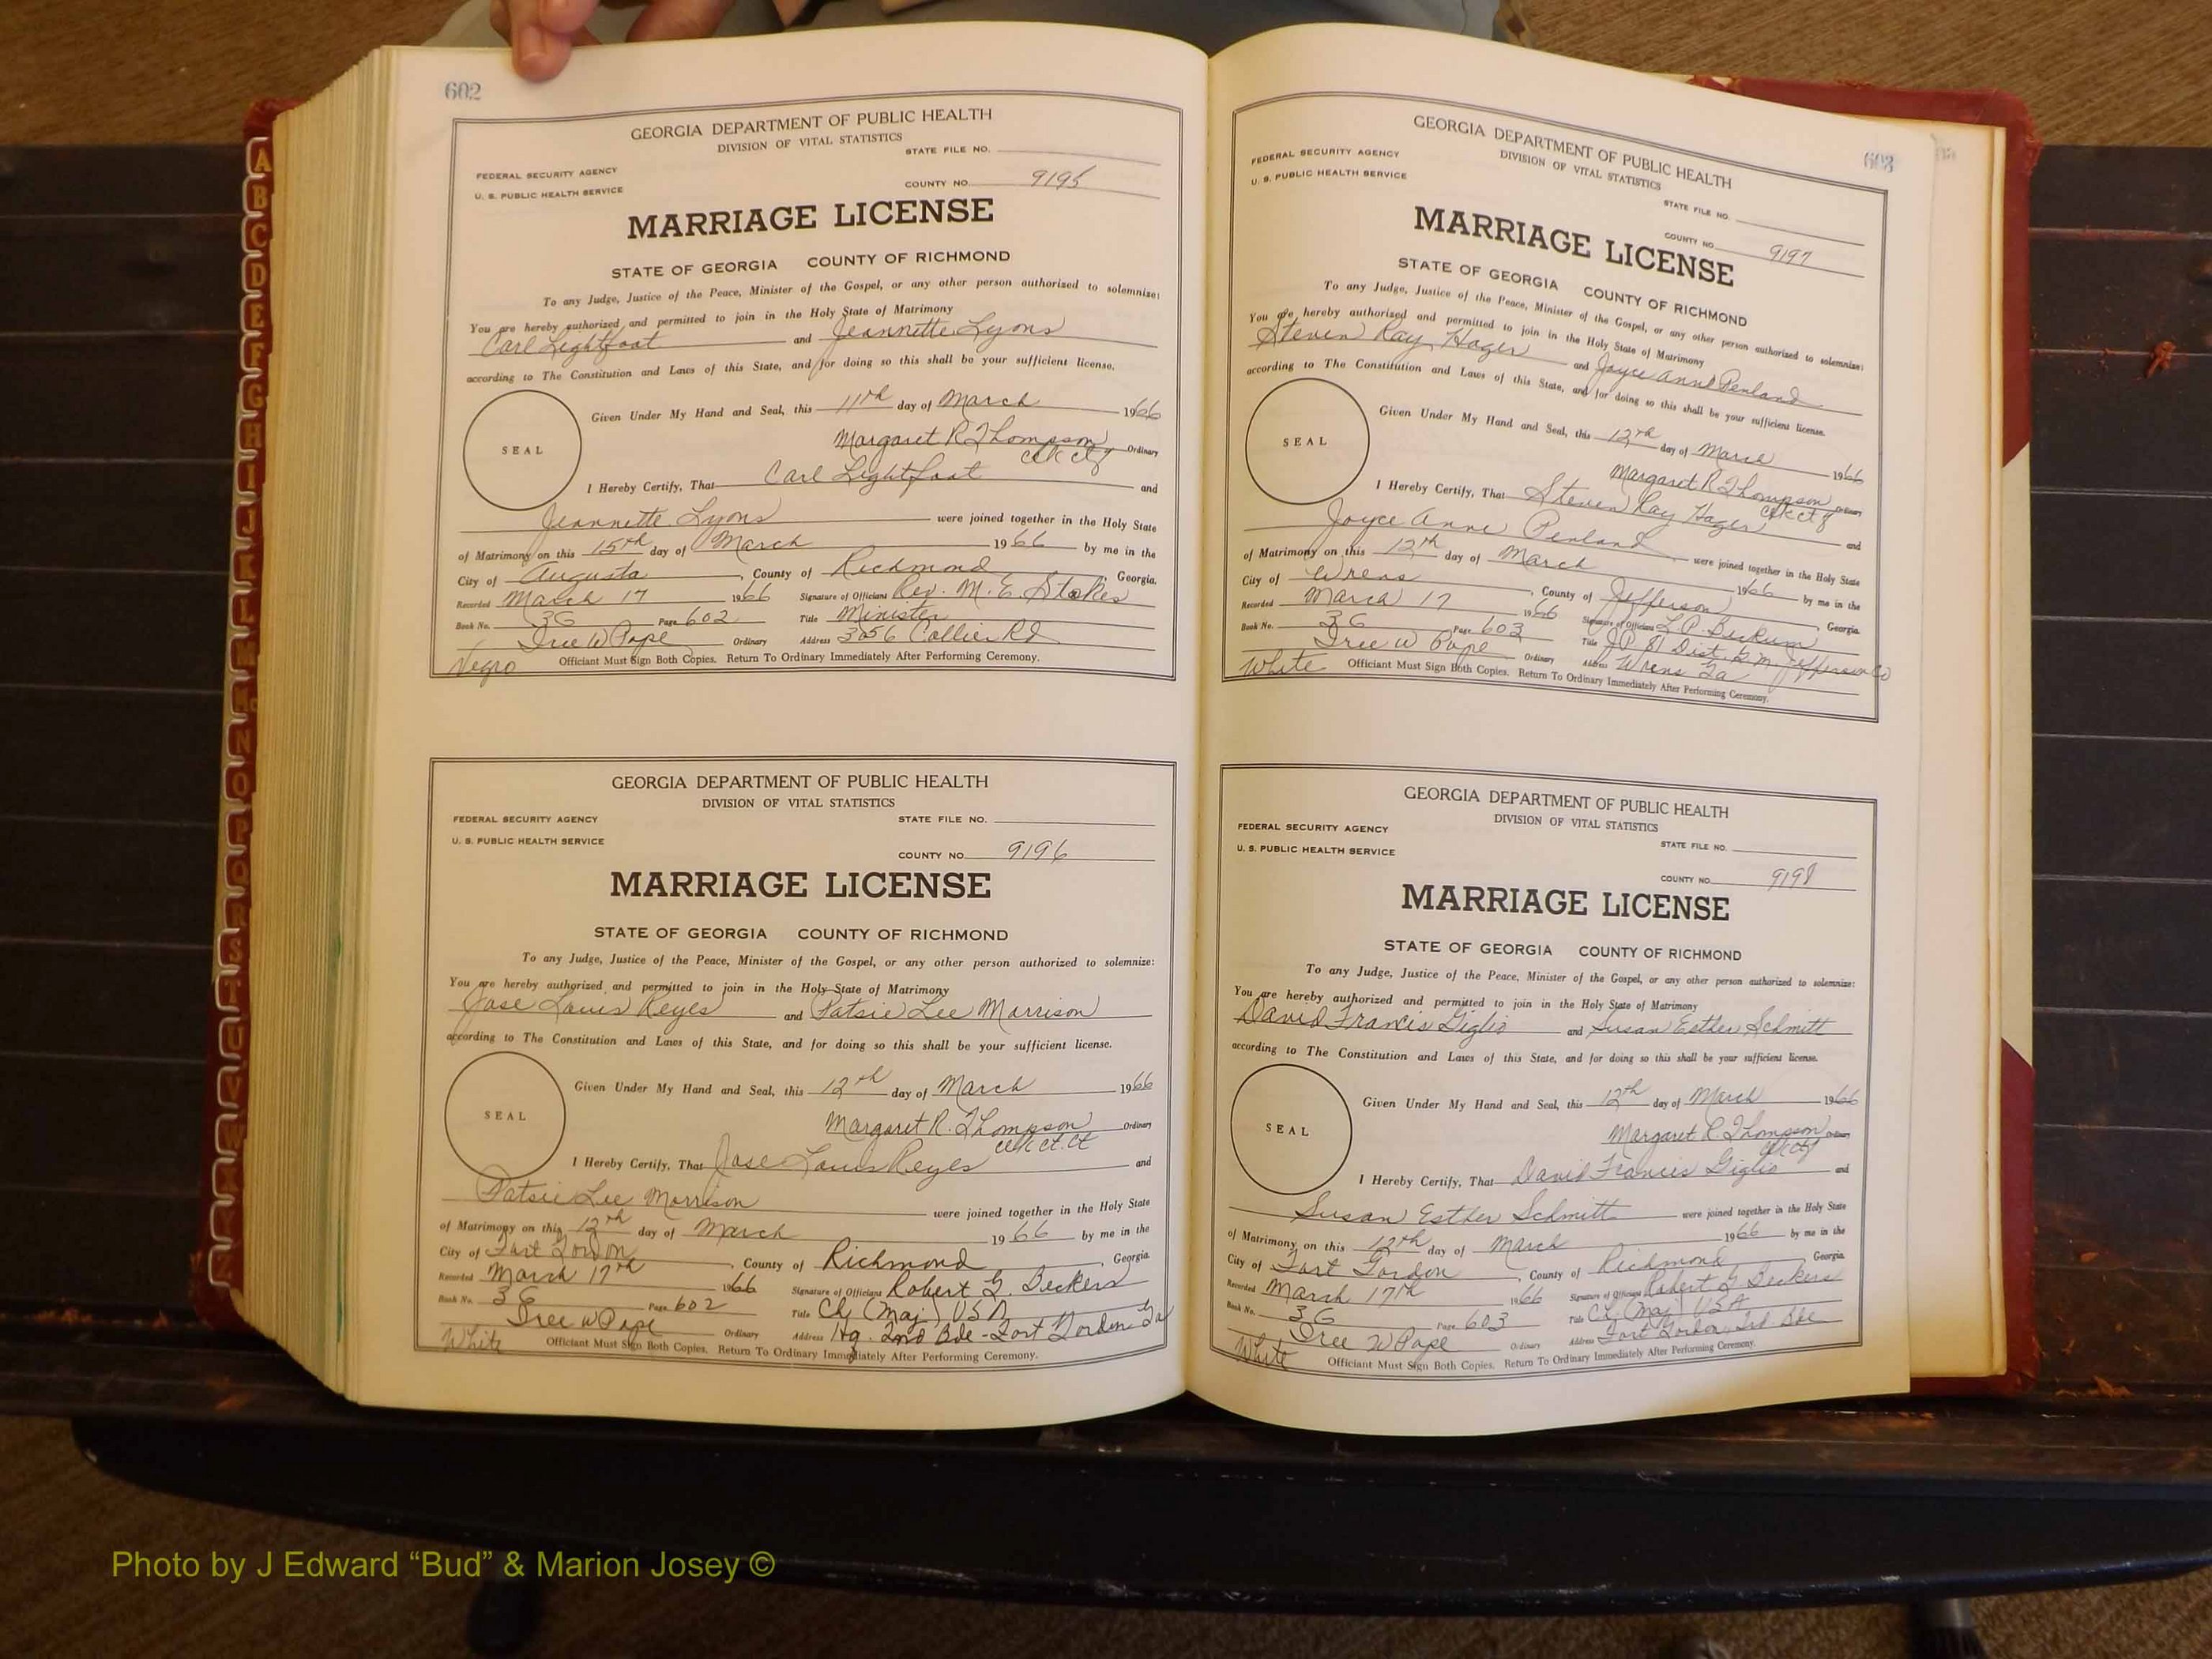 602
GEORGIA DEPARTMENT OF PUBLIC HEALTH
DIVISION OF VITAL STATISTICS
STATE FILE NO.
FEDERAL SECURITY AGENCY
U. S. PUBLIC HEALTH SERVICE
COUNTY NO. 9195
MARRIAGE LICENSE
STATE OF GEORGIA COUNTY OF RICHMOND
To any Judge, Justice of the Peace, Minister of the Gospel, or any other person authorized to solemnize:
You are hereby authorized and permitted to join in the Holy State of Matrimony
Carl Lightfoot and Jeannette Lyons
according to The Constitution and Laws of this State, and for doing so this shall be your sufficient license.
SEAL
Given Under My Hand and Seal, this 11th day of March 1966
Margaret R Thompson Ordinary
I Hereby Certify, That Carl Lightfoot and
Jeannette Lyons were joined together in the Holy State
of Matrimony on this 15th day of March 1966 by me in the
City of Augusta, County of Richmond, Georgia.
Recorded March 17 1966 Signature of Officiant Rev. M. E. Stokes
Book No. 3G Page 602 Title Minister
Iree W Pope Ordinary Address 3056 Collier Rd
Negro Officiant Must Sign Both Copies. Return To Ordinary Immediately After Performing Ceremony.
GEORGIA DEPARTMENT OF PUBLIC HEALTH
DIVISION OF VITAL STATISTICS
FEDERAL SECURITY AGENCY STATE FILE NO.
U. S. PUBLIC HEALTH SERVICE
COUNTY NO. 9196
MARRIAGE LICENSE
STATE OF GEORGIA COUNTY OF RICHMOND
To any Judge, Justice of the Peace, Minister of the Gospel, or any other person authorized to solemnize:
You are hereby authorized and permitted to join in the Holy State of Matrimony
Jose Louis Reyes and Patsie Lee Morrison
according to The Constitution and Laws of this State, and for doing so this shall be your sufficient license.
SEAL
Given Under My Hand and Seal, this 12th day of March 1966
Margaret R. Thompson Ordinary
I Hereby Certify, That Jose Louis Reyes and
Patsie Lee Morrison were joined together in the Holy State
of Matrimony on this 12th day of March 1966 by me in the
City of Fort Gordon, County of Richmond, Georgia.
Recorded March 17th 1966 Signature of Officiant Robert G. Beckers
Book No. 3G Page 602 Title Ch (Maj) USA
Iree W Pope Ordinary Address Hq. 2nd Bde - Fort Gordon, Ga
White Officiant Must Sign Both Copies. Return To Ordinary Immediately After Performing Ceremony.
603
GEORGIA DEPARTMENT OF PUBLIC HEALTH
DIVISION OF VITAL STATISTICS
FEDERAL SECURITY AGENCY
U. S. PUBLIC HEALTH SERVICE
STATE FILE NO.
COUNTY NO. 9197
MARRIAGE LICENSE
STATE OF GEORGIA COUNTY OF RICHMOND
To any Judge, Justice of the Peace, Minister of the Gospel, or any other person authorized to solemnize:
You are hereby authorized and permitted to join in the Holy State of Matrimony
Steven Ray Hager and Joyce Anne Penland
according to The Constitution and Laws of this State, and for doing so this shall be your sufficient license.
SEAL
Given Under My Hand and Seal, this 12th day of March 1966
Margaret R Thompson Ordinary
I Hereby Certify, That Steven Ray Hager and
Joyce Anne Penland were joined together in the Holy State
of Matrimony on this 12th day of March 1966 by me in the
City of Wrens, County of Jefferson, Georgia.
Recorded March 17 1966 Signature of Officiant L.P. Beckum
Book No. 3G Page 603 Title JP 81 Dist. G.M. Jefferson Co
Iree W Pope Ordinary Address Wrens Ga
White Officiant Must Sign Both Copies. Return To Ordinary Immediately After Performing Ceremony.
GEORGIA DEPARTMENT OF PUBLIC HEALTH
DIVISION OF VITAL STATISTICS
FEDERAL SECURITY AGENCY
U. S. PUBLIC HEALTH SERVICE
STATE FILE NO.
COUNTY NO. 9198
MARRIAGE LICENSE
STATE OF GEORGIA COUNTY OF RICHMOND
To any Judge, Justice of the Peace, Minister of the Gospel, or any other person authorized to solemnize:
You are hereby authorized and permitted to join in the Holy State of Matrimony
David Francis Giglio and Susan Esther Schmitt
according to The Constitution and Laws of this State, and for doing so this shall be your sufficient license.
SEAL
Given Under My Hand and Seal, this 12th day of March 1966
Margaret R. Thompson Ordinary
I Hereby Certify, That David Francis Giglio and
Susan Esther Schmitt were joined together in the Holy State
of Matrimony on this 12th day of March 1966 by me in the
City of Fort Gordon, County of Richmond, Georgia.
Recorded March 17th 1966 Signature of Officiant Robert G Beckers
Book No. 3G Page 603 Title Ch (Maj) USA
Iree W Pope Ordinary Address Fort Gordon, Bde
White Officiant Must Sign Both Copies. Return To Ordinary Immediately After Performing Ceremony.
A
B
C
D
E
F
G
H
I
J
K
L
M
Mc
N
O
P
Q
R
S
T
U
V
W
Photo by J Edward “Bud” & Marion Josey ©